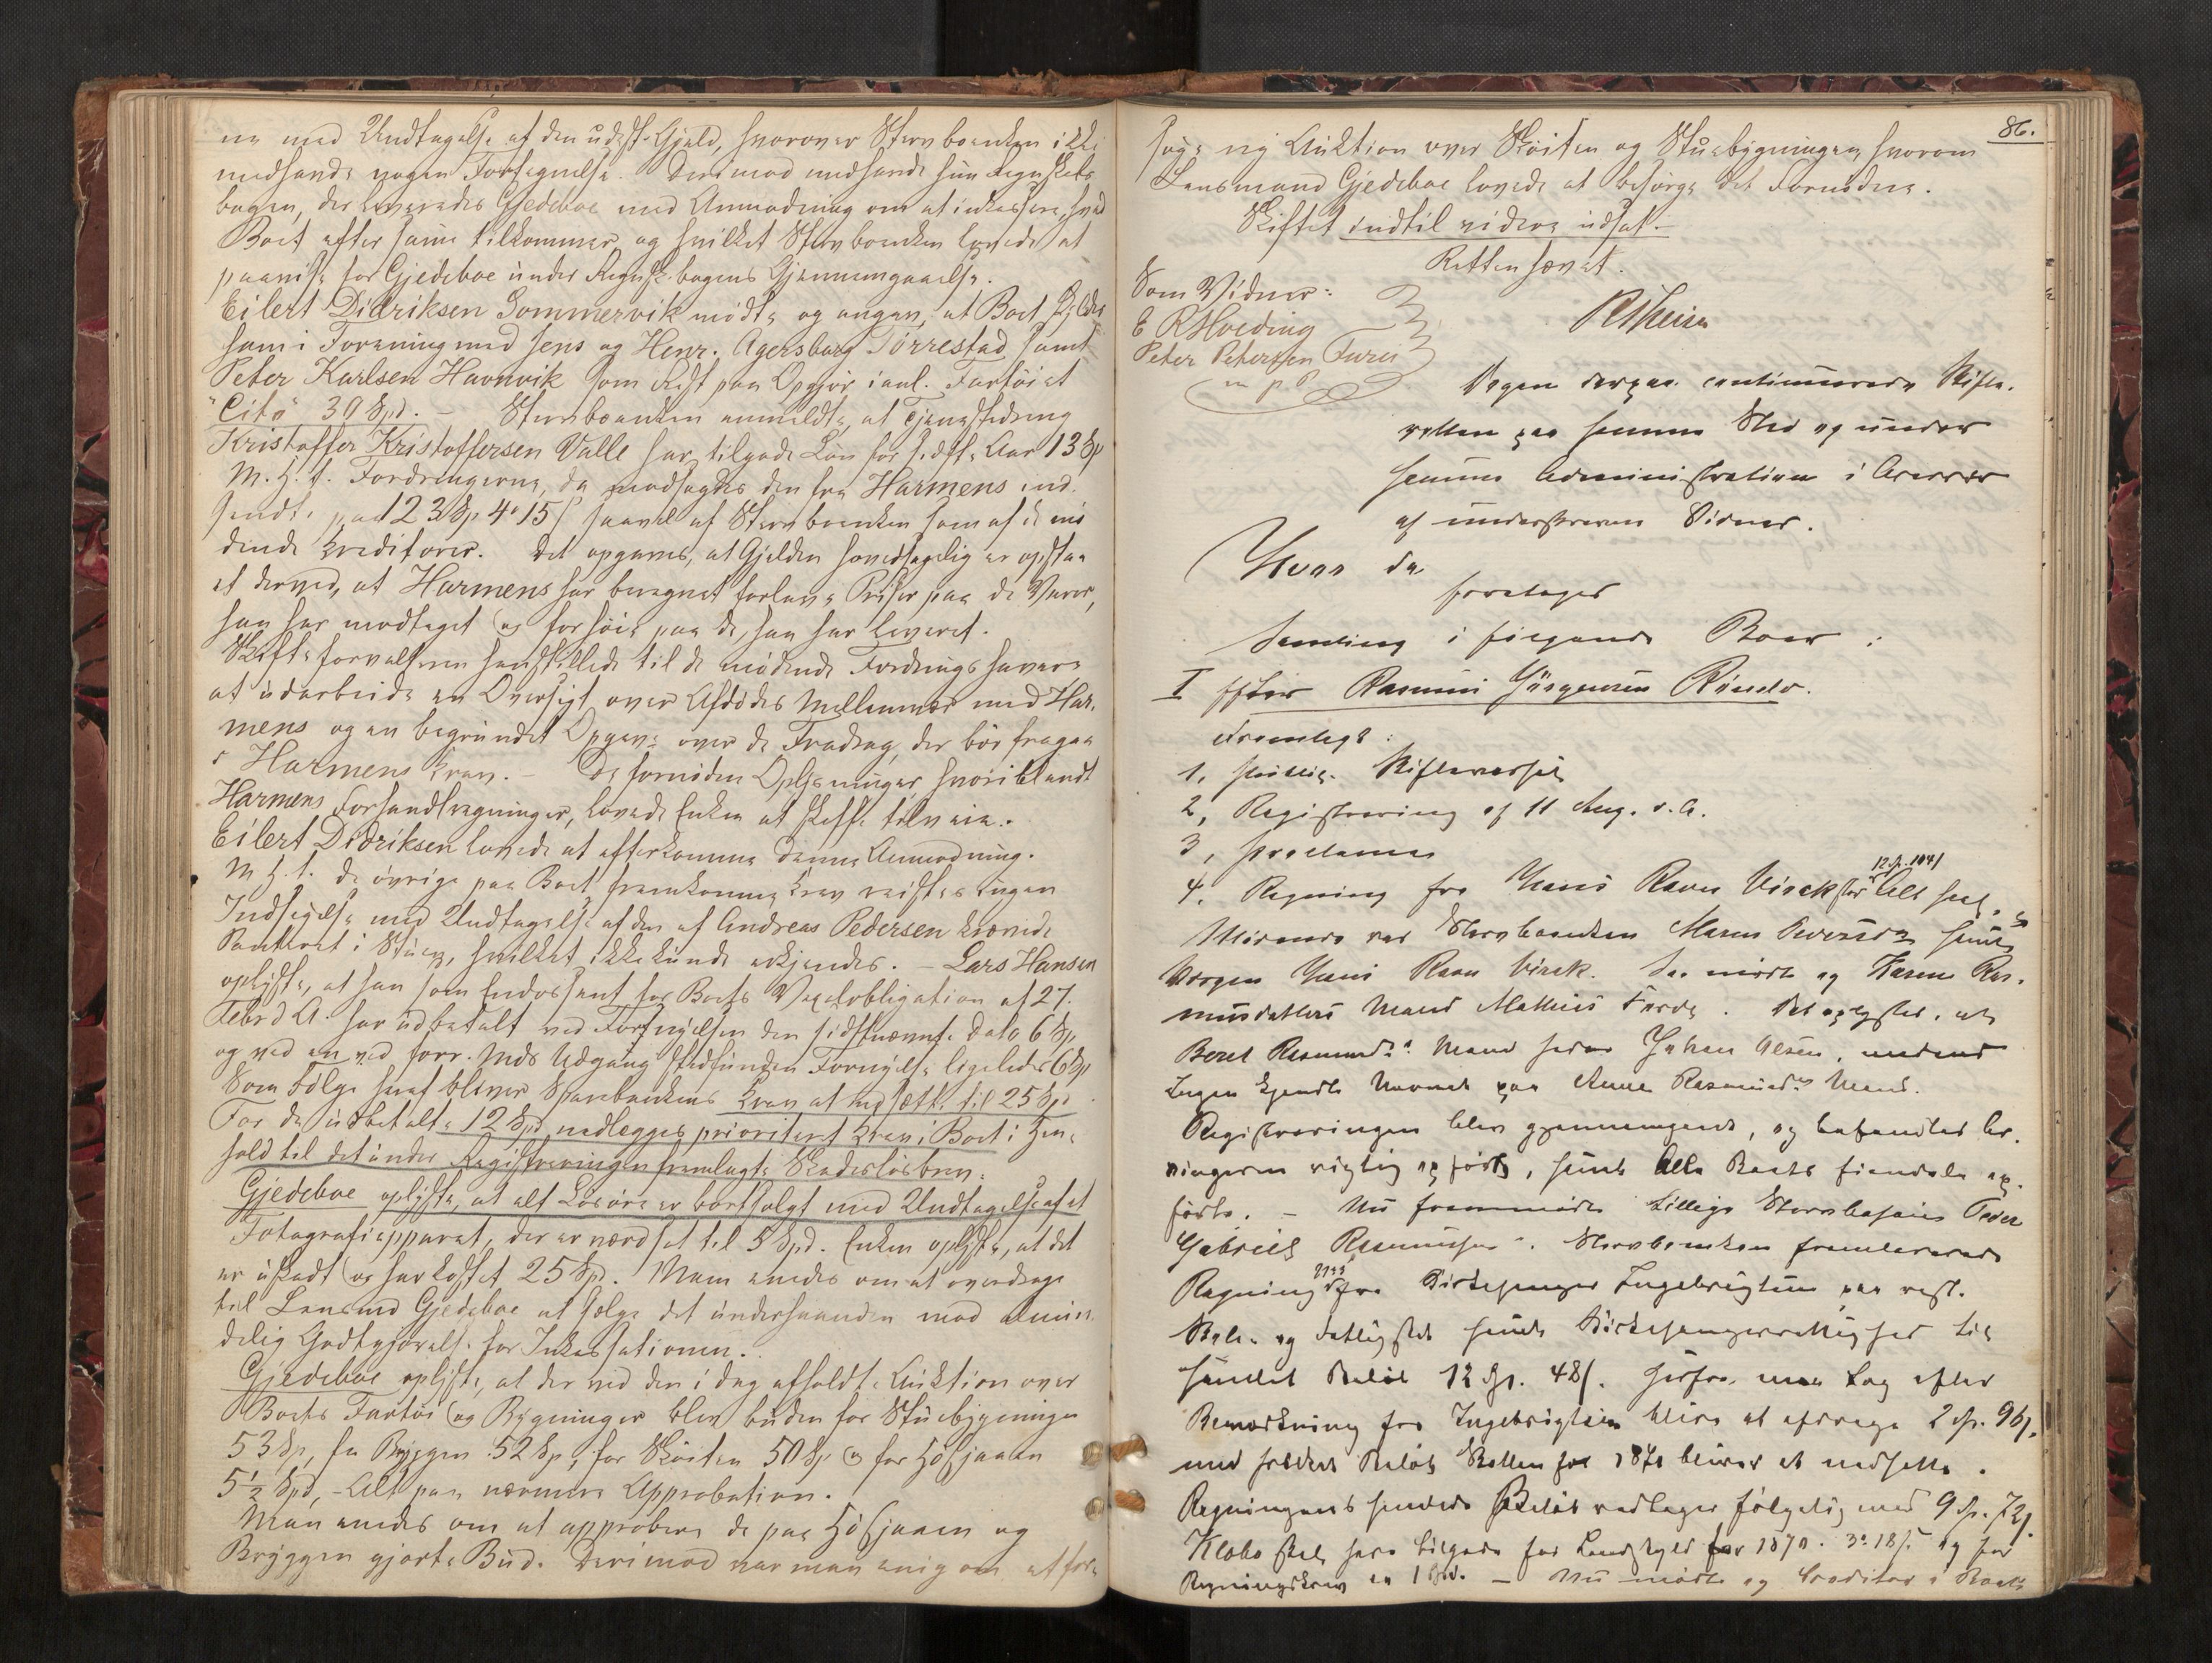 ne med Undtagelse af den udest. Gjæld, hvorover Stervboenken ikke
medhavde nogen Fortegnelse. Derimod medhavde hun Regnskabs
bogen, der leveredes Gjedeboe med Anmodning om at inkassere, hvad
Boet efter samme tilkommer og hvilket Stervboenken lovede at
paavise for Gjedeboe under Regnsk.bogens Gjennemgaaelse.
Eilert Didriksen Sommervik mødte og angav, at Boet skylder
ham i Forening med Jens og Henr. Agersborg Torrestad samt
Peter Karlsen Havnvik som Rest paa Opgjør i anl. Fartøiet
"Cito" 39 Spd. – Stervboenken anmeldte, at Tjenestedreng
Kristoffer Kristoffersen Valle har tilgode Løn for sidste Aar 13 Sp
M. H. t. Fordringerne, da modsagdes den fra Harmens ind
sendte paa 123 Sp 4 15 s saavel af Stervboenken som af de mø
dende Kreditorer. Det opgaves, at Gjælden hovedsagelig er opstaa
et derved, at Harmens har beregnet for lave Priser paa de Varer,
han har modtaget og for høie paa de, han har leveret.
Skifteforvalteren henstillede til de mødende Fordringshavere
at udarbeide en Oversigt over Afdødes Mellemvær med Har-
mens og en begrundet Opgave over de Fradrag, der bør fragaa
i Harmens Krav. – De fornødne Oplysninger hvoriblandt
Harmens Forhandlregninger, lovede Enken at skaffe tilveie.
Eilert Didriksen lovede at efterkomme denne Anmodning.
M H. t. de øvrige paa Boet fremkomne Krav reistes ingen
Indsigelse med Undtagelse af den af Andreas Pedersen krævede
Panteret i Stuen, hvilket ikke kunde erkjendes. – Lars Hansen
oplyste, at han som Endossent for Boets Vexelobligation af 27.
Febr d A. har udbetalt ved Fornyelsen den sidstnævnte Dato 6 Sp,
og ved en ved forr. Mds Udgang stedfunden Fornyelse ligeledes 6 Sp
Som Følge heraf bliver Sparebankens Krav at nedsætte til 25 Spd.
For de udbetalte 12 Spd. vedlægges prioriteret Krav i Boet i Hen-
hold til det under Registreringen fremlagte Skadesløsbrev.
Gjedeboe oplyste, at alt Løsøre er bortsolgt med Undtagelse af et
Fotografiapparat, der er værdsat til 5 Spd. Enken oplyste, at det
er uskadt og har kostet 25 Spd. Man enedes om at overdrage
til Lensmd Gjedeboe at sælge det underhaanden mod almin-
delig Godtgjørelse for Inkassationen.
Gjedeboe oplyste, at der ved den i Dag afholdte Auktion over
Boets Fartøi og Bygninger blev buden for Stuebygningen
53 Sp, for Bryggen 52 Sp, for Skøiten 50 Sp og for Høsjaaen
5½ Spd, – Alt paa nærmere Approbation.
Man enedes om at approbere de paa Høsjaaen og
Bryggen gjorte Bud. Derimod var man enig om at for-
86.
søge ny Auktion over Skøiten og Stuebygningen, hvorom
Lensmand Gjedeboe lovede at besørge det Fornødne.
Skiftet indtil videre udsat.
Retten hævet.
Som Vidner:
E R Hveding
Peter Petersen Furei
m p P
Dagen derpaa continuerede Skifte-
retten paa samme Sted og under
samme Administration i Overvær
af underskrevne Vidner.
Hvor da
foretoges
Samling i følgende Boer:
I Efter Rasmus Jørgensen
Fremlagt:
1, Skriftlig Skiftevarsel
2, Registrering af 11 Aug. d. A.
3, Proclama
4, Regning fra Hans Ravn Virak for 12 Sp. 104 s
Mødende var Stervboenken Maren Pedersd. samt
Værgen Hans Ravn Virak. Saa mødte og Karen Ras-
musdatters Mand Mathias. Det oplystes, at
Beret Rasmusd.s Mand heder Johan Olsen, medens
Ingen kjendte Navnet paa Anne Rasmusd.s Mand.
Registreringen blev gjennemgaaet, og befandtes Ar-
vingerne rigtig opført, samt Alle Boets Eiendele op-
førte. – Nu fremmødte tillige Stervbohavn Peder
Gabriel Rasmussen. Stervboenken fremleverede
Regning fra Kirkesanger Ingebrigtsen paa rest.
Skole- og Fattigskat samt Kirkesangerrettighed til
samlet Beløb 12 Sp. 48 s. Herfra maa dog efter
Bemærkning fra Ingebrigtsen blive at afdrage 2 Sp. 96 s.
med hvilket Beløb Skatten for 1870 bliver at nedsætte.
Regningens samlede Beløb vedtages følgelig med 9 Sp. 72 s.
Klæbo skal have tilgode for Landskyld for 1870. 3 18 s og for
Regningskrav ca 1 Spd. – Nu mødte og Creditor i Boet